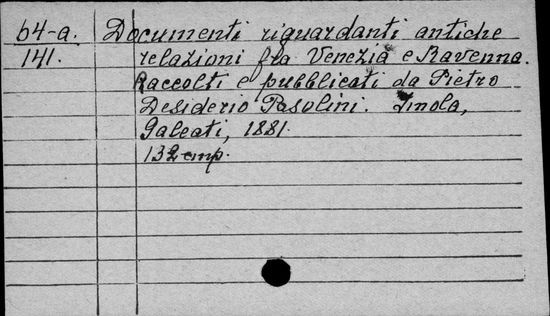 64-a. Documenti riguardanti antiche
141. relazioni fra Venezia e Ravenna.
Raccolti e pubblicati da Pietro
Desiderio Pasolini. Imola,
Galeati, 1881.
132 p.